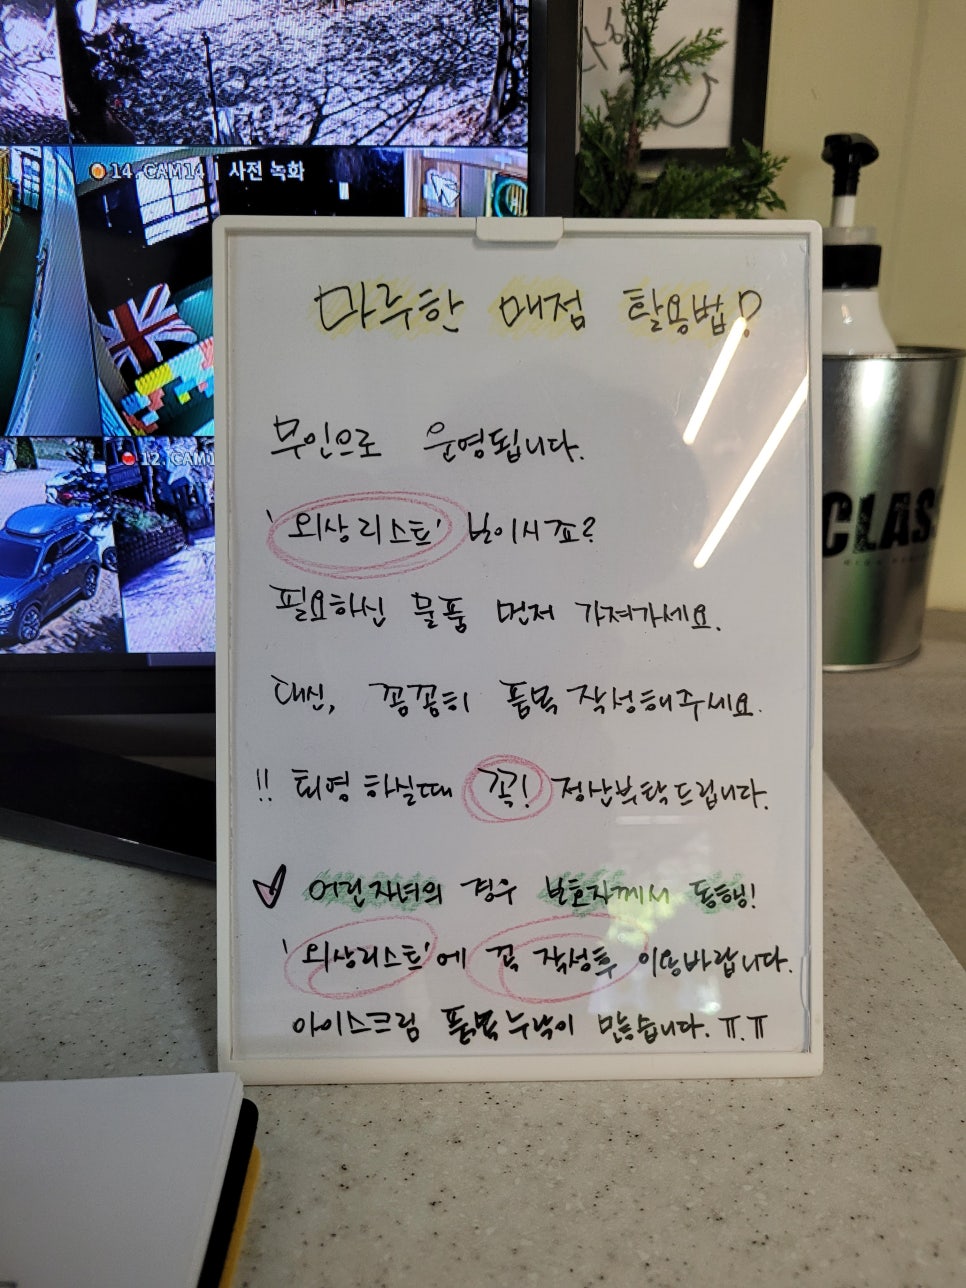 14. CAM14 | 사전 녹화
마루한 매점 활용법!
무인으로 운영됩니다.
'외상리스트' 보이시죠?
필요하신 물품 먼저 가져가세요.
대신, 꼼꼼히 품목 작성해주세요.
!! 퇴영 하실때 꼭! 정산부탁드립니다.
어린자녀의 경우 보호자께서 동행!
'외상리스트'에 꼭 작성후 이용바랍니다.
아이스크림 품목누락이 많습니다. ㅠ.ㅠ
12. CAM1
CLAS